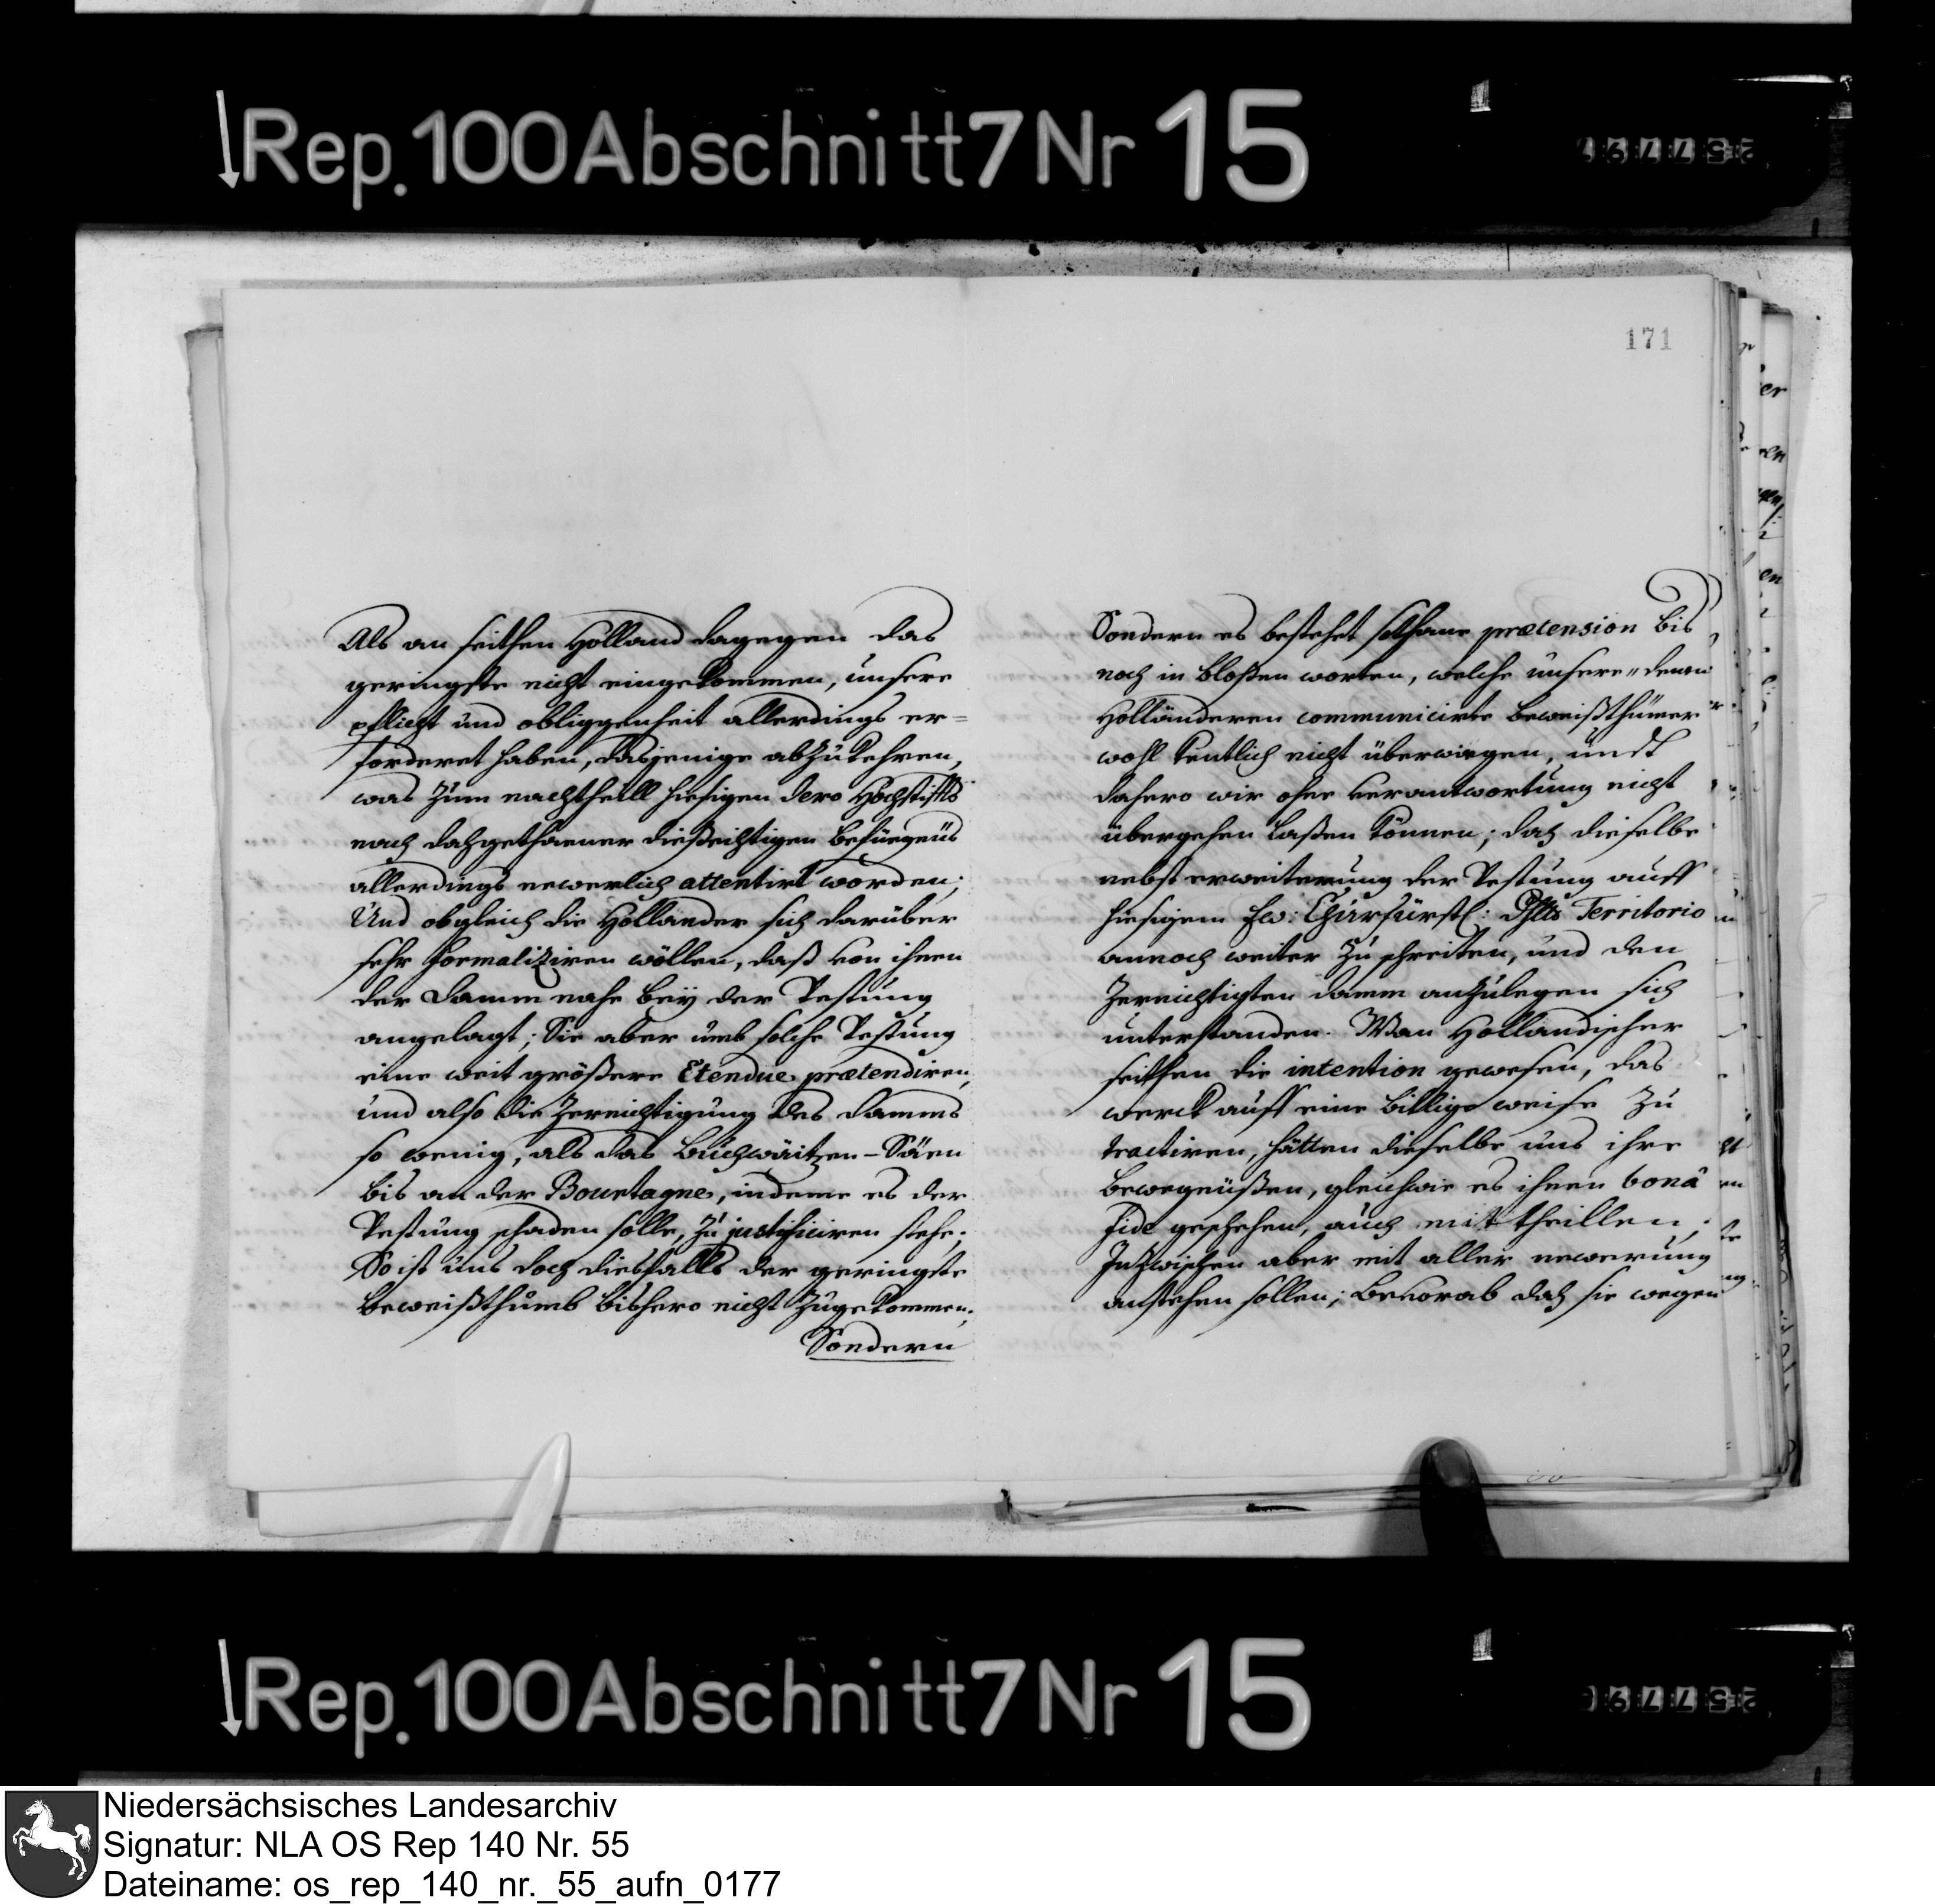 Rep. 100 Abschnitt 7 Nr 15
171
Als an seithen Holland dagegen das
geringste nicht eingekommen, unsere
pflicht und obliggenheit allerdings er-
forderet haben, dasjenige abzukehren,
was zum nachtheill hiesigen dero Hochstiffts
nach dahgethaener dießeithigen befuegnüs
allerdings newerlich attentirt worden;
Und obgleich die Holländer sich darüber
sehr formaliziren wöllen, daß von ihnen
der Damm nahe bey der Vestung
angelagt; Sie aber umb solche Vestung
eine weit größere Etendue prætendiren,
und also die Zernichtigung des Damms
so wenig, als das Buchwäitzen-Säen
bis an der Bourtagne, indeme es der
Vestung schaden solle, zu justificiren stehe;
So ist uns doch diesfalls der geringste
beweißthumb bishero nicht zugekommen;
Sondern
Sondern es bestehet solthane prætension bis
noch in bloßen worten, welche unsere denen
Holländeren communicirte beweißthümer
wohl kentlich nicht überwiegen, undt
dahero wir ohne verantwortung nicht
übergehen laßen können; dah dieselbe
nebst erweiterung der Vestung auff
hiesigem Ew: Churfürstl: Dhlt Territorio
annoch weiter zu schreiten, und den
Zernichtigten damm anzulegen sich
unterstanden. Wan Holländischer
seithen die intention gewesen, das
werck auff eine billige weise zu
tractiren, hätten dieselbe uns ihre
bewegnüßen, gleichwie es ihnen bonâ
fide geschehen, auch mittheillen;
Inzwischen aber mit aller newerung
anstehen sollen; bevorab dah sie wegen
Rep. 100 Abschnitt 7 Nr 15
Niedersächsisches Landesarchiv
Signatur: NLA OS Rep 140 Nr. 55
Dateiname: os_rep_140_nr._55_aufn_0177